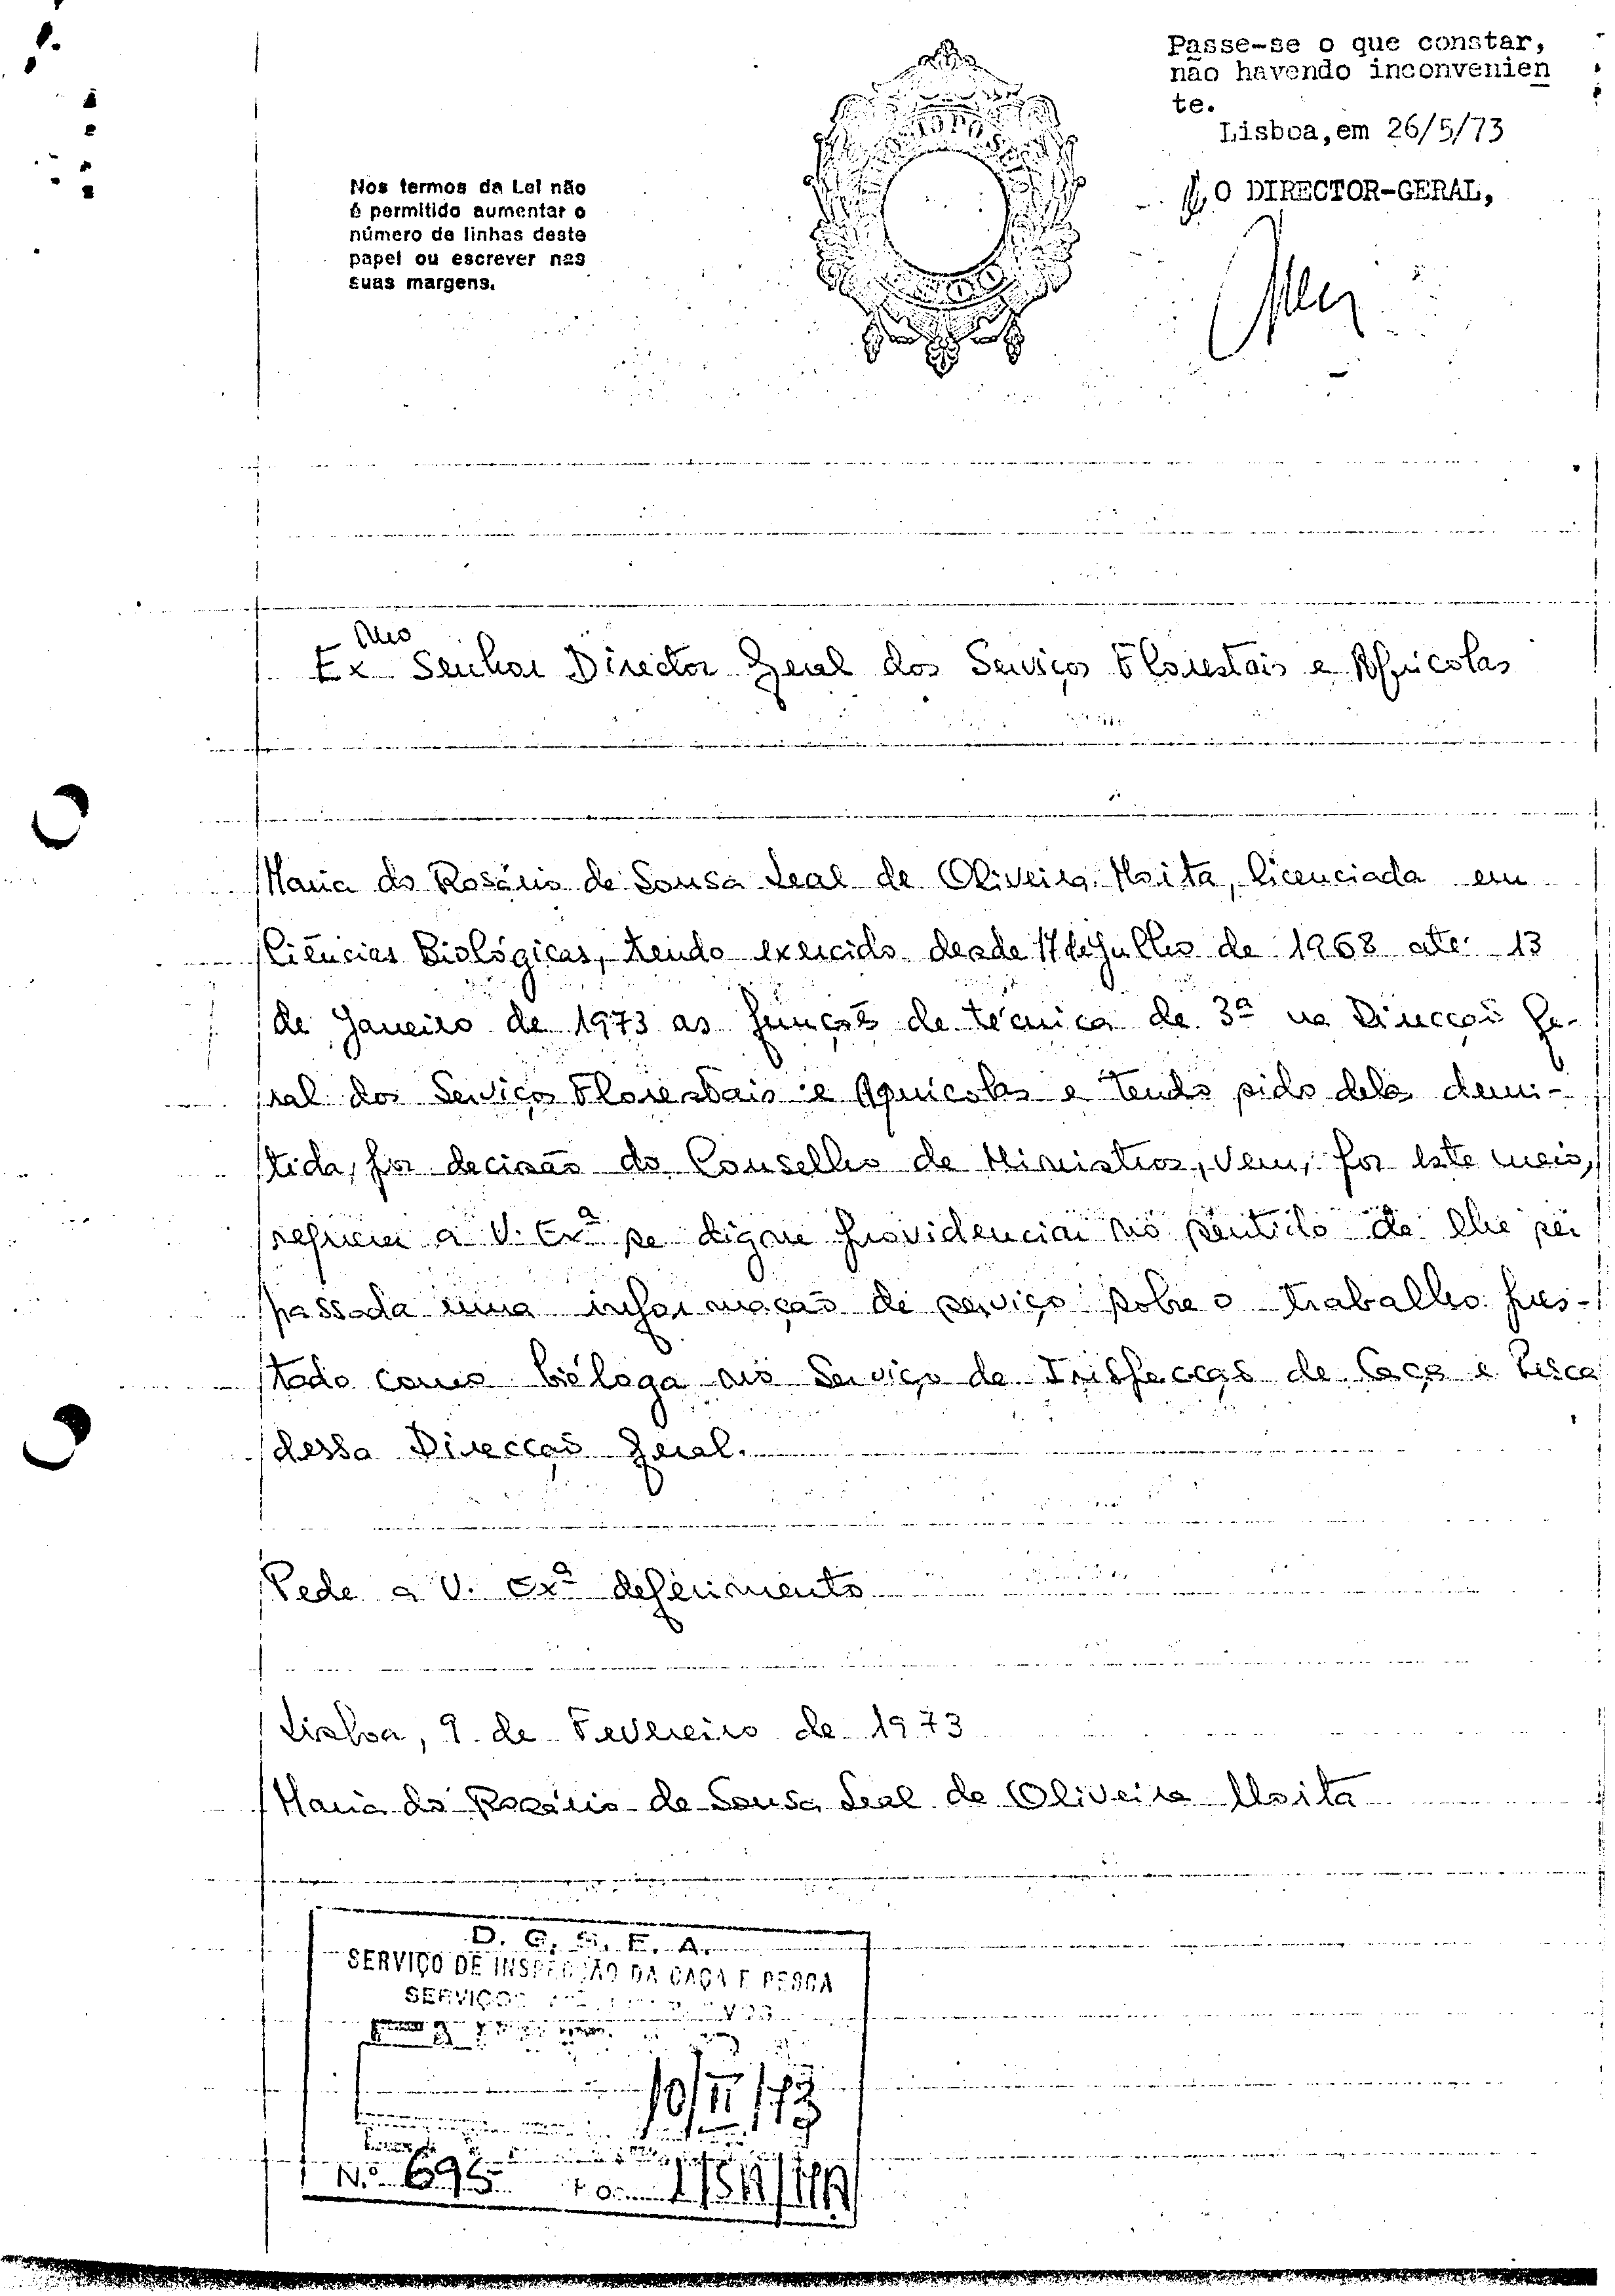 Passe-se o que constar,
não havendo inconvenien
te.
Lisboa, em 26/5/73
O DIRECTOR-GERAL,
Nos termos da Lei não
é permitido aumentar o
número de linhas deste
papel ou escrever nas
suas margens.
Exmo Senhor Director Geral dos Serviços Florestais e Aquicolas
Maria do Rosário de Sousa Leal de Oliveira Moita, licenciada em
Ciências Biológicas, tendo exercido desde 17 de Julho de 1968 até 13
de Janeiro de 1973 as funções de técnica de 3ª na Direcção Ge-
ral dos Serviços Florestais e Aquicolas e tendo sido dela demi-
tida, por decisão do Conselho de Ministros, vem, por este meio,
requerer a V. Exª se digne providenciar no sentido de lhe ser
passada uma informação de serviço sobre o trabalho pres-
tado como bióloga no Serviço de Inspecção de Caça e Pesca
dessa Direcção Geral.
Pede a V. Exª deferimento
Lisboa, 9 de Fevereiro de 1973
Maria do Rosário de Sousa Leal de Oliveira Moita
D. G. S. F. A.
SERVIÇO DE INSPECÇÃO DA CAÇA E PESCA
SERVIÇOS
10/II/73
N.º 695